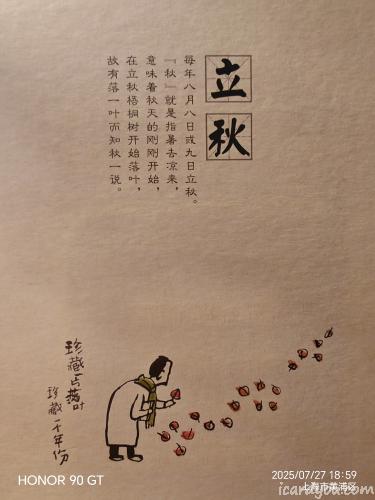 立秋
每年八月八日或九日立秋。
『秋』就是指暑去凉来，
意味着秋天的刚刚开始，
在立秋梧桐树开始落叶，
故有落一叶而知秋一说。
珍藏一片落叶
珍藏一千年份
HONOR 90 GT
2025/07/27 18:59
上海市黄浦区
icaratyou.com